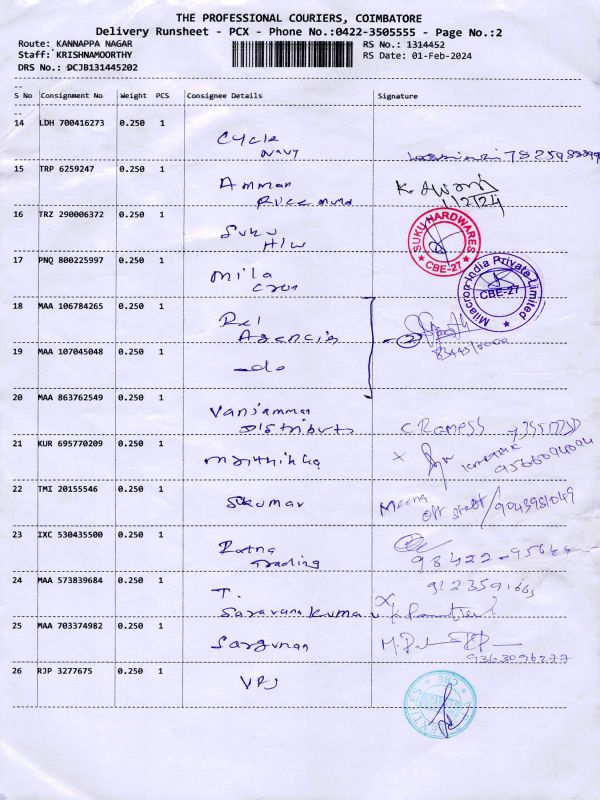 THE PROFESSIONAL COURIERS, COIMBATORE
Delivery Runsheet - PCX - Phone No.:0422-3505555 - Page No.:2
Route: KANNAPPA NAGAR
RS No.: 1314452
Staff: KRISHNAMOORTHY
RS Date: 01-Feb-2024
DRS No.: DCJB131445202
S No Consignment No Weight PCS Consignee Details Signature
14 LDH 700416273 0.250 1
Cycle
Navy
15 TRP 6259247 0.250 1
Amman
1/2/24
16 TRZ 290006372 0.250 1
Suku
H/W
SUKU HARDWARES
★ CBE-27 ★
17 PNQ 800225997 0.250 1
Mila
cron
Milacron India Private Limited
CBE-27
★
18 MAA 106784265 0.250 1
Agencies
2
19 MAA 107045048 0.250 1
-do
20 MAA 863762549 0.250 1
Distributs
C. Ramesh
21 KUR 695770209 0.250 1
x
9566094094
22 TMI 20155546 0.250 1
Sukumar
Meena
9043981049
23 IXC 530435500 0.250 1
Ratna
Trading
24 MAA 573839684 0.250 1
T.
Saravana Kumar
25 MAA 703374982 0.250 1
Sargunan
26 RJP 3277675 0.250 1
VRJ
CBE